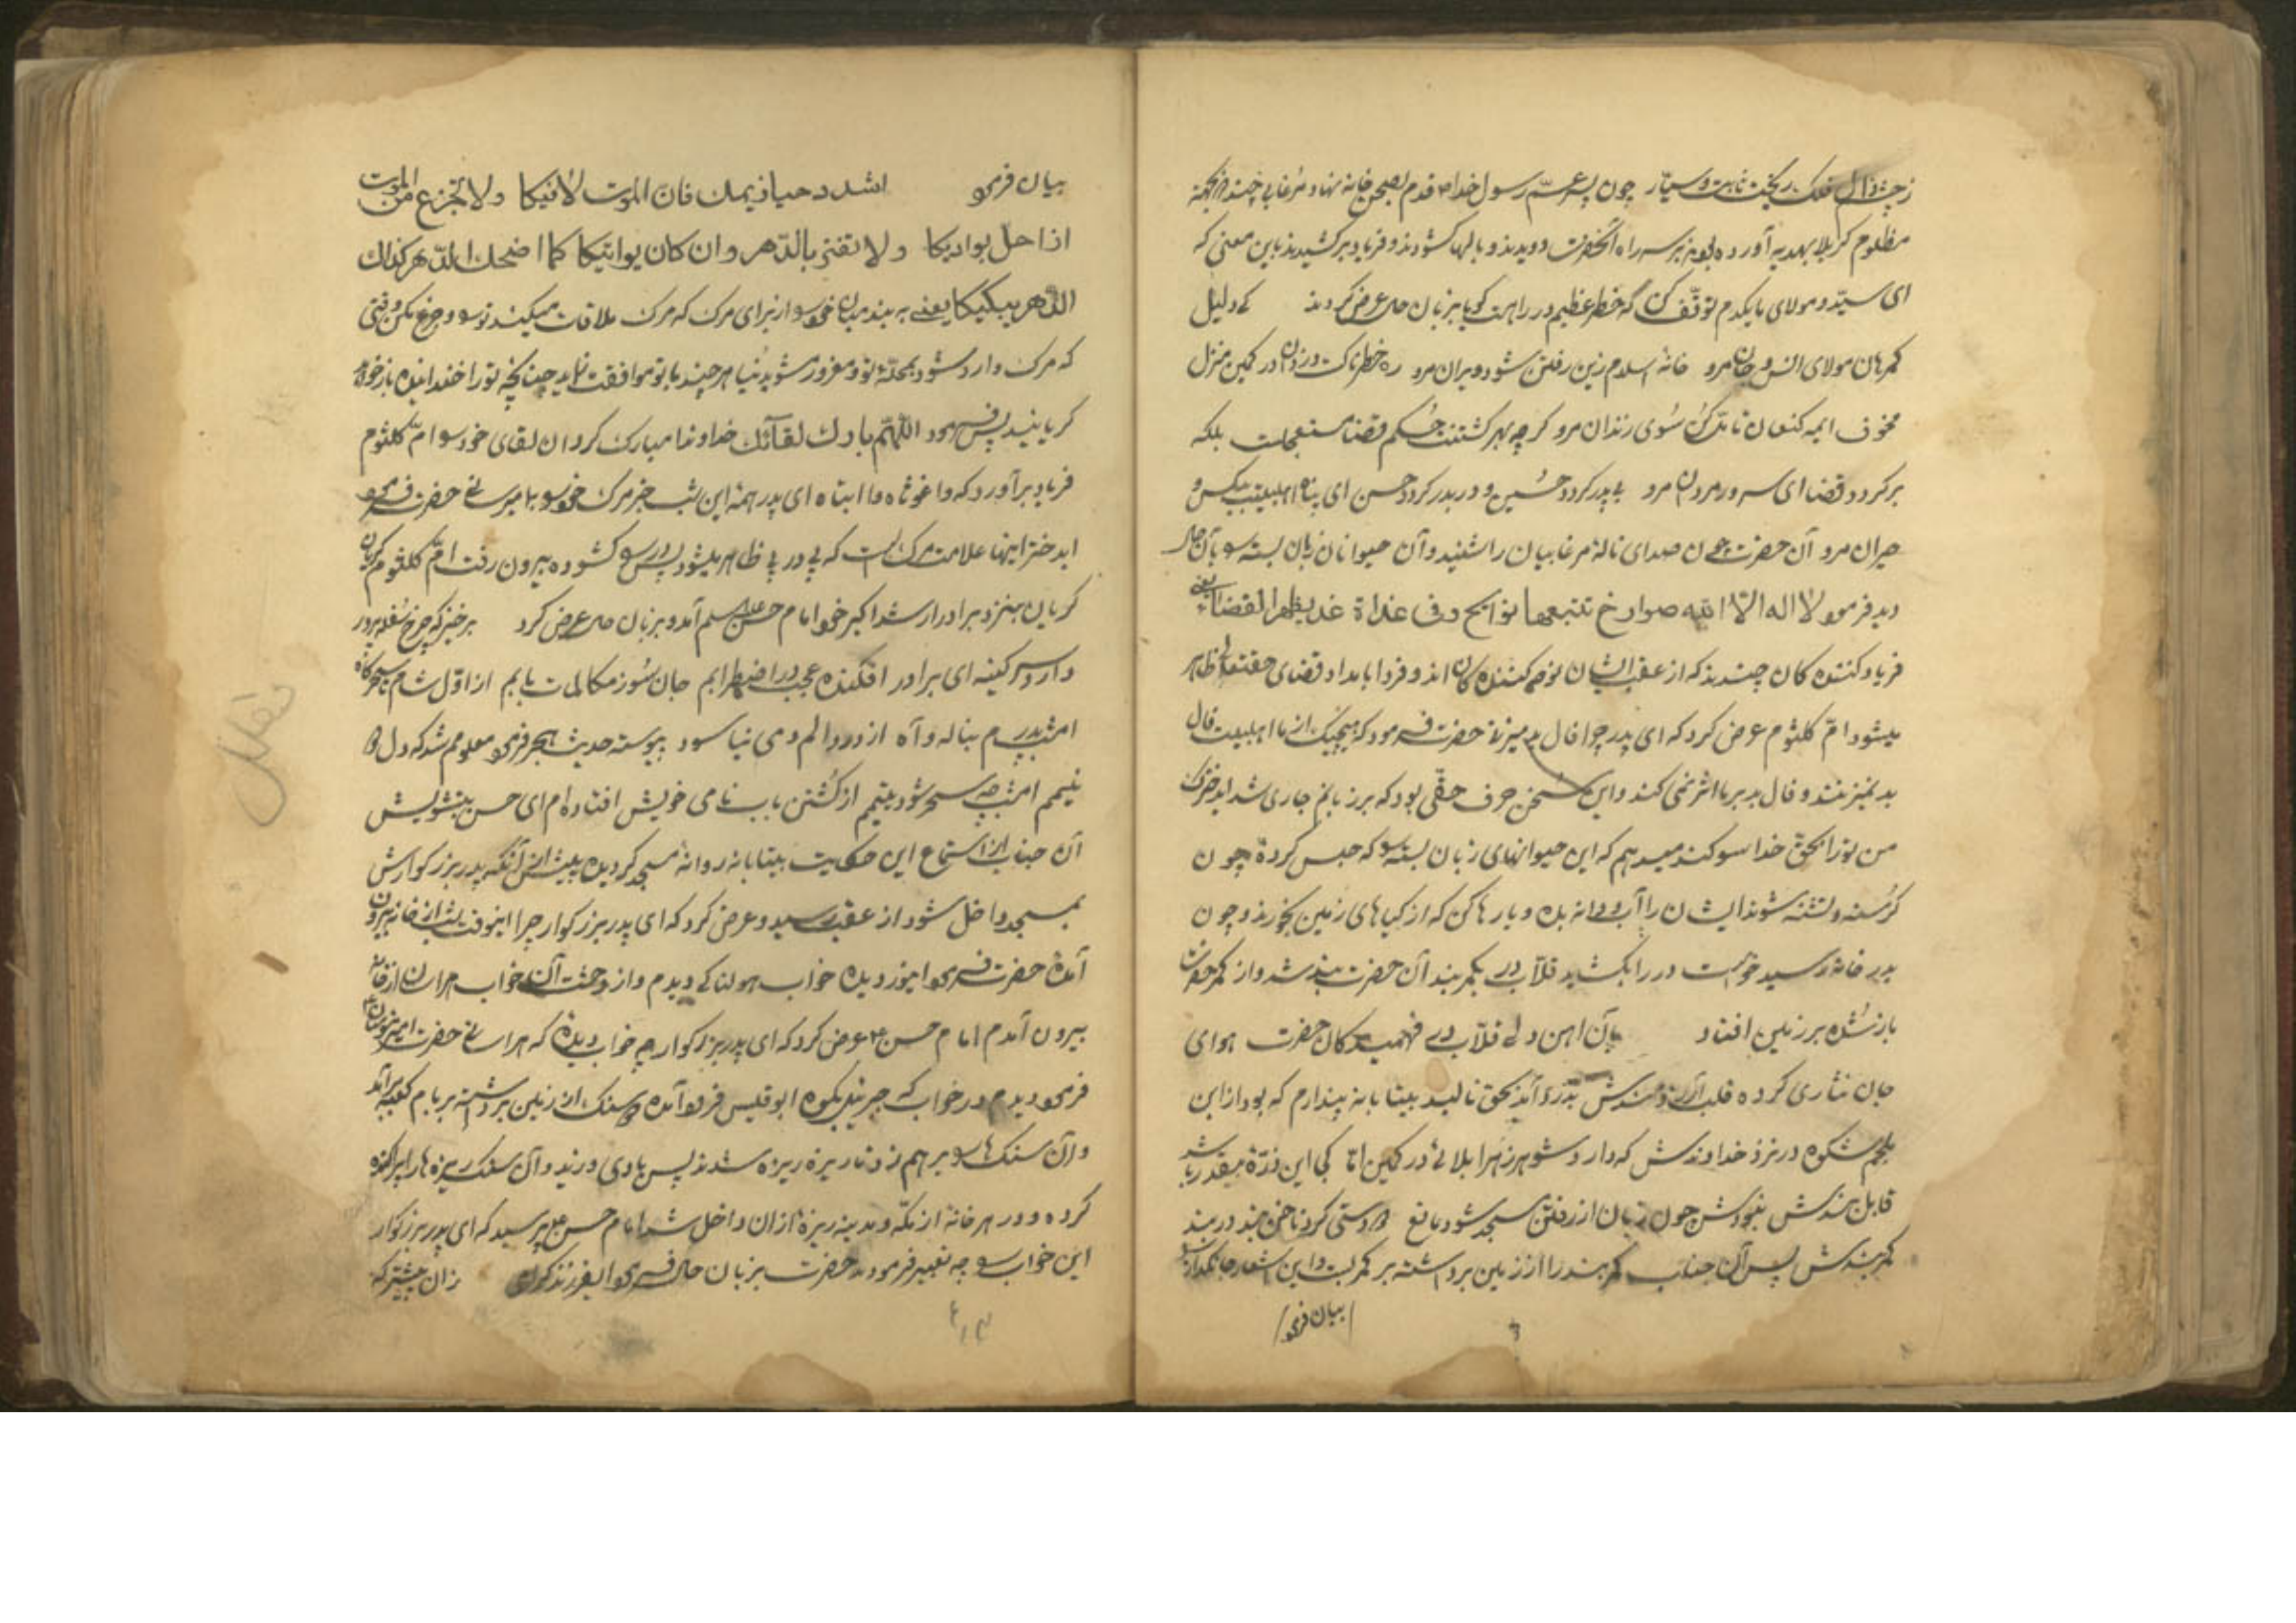 ز چشم زال فلک ریخت ثابت و سیار چون پسر عمّ رسول خدا قدم بصحن خانه نهاد و مرغابی چند که بجهة
مظلوم کربلا بهدیه آورده بودند بر سر راه آنحضرت دویدند و بالها کشودند و فریاد برکشیدند باین معنی که
ای سیّد و مولای ما یکدم توقّف کن که خطر عظیم در راهت کویا بزبان حال عرض کردند کی دلیل
کمرهان مولای انس و جان مرو خانهٔ اسلام زین رفتن شود ویران مرو ره خطرناکست و دزدان در کمین منزل
مخوف ای مه کنعان سوی زندان مرو کرچه بهر کشتنت حکم قضا مستعجلت بلکه
برکردد قضا ای سرور مردان مرو بی پدر کردد حسین و دربدر کردد حسن ای پناه اهلبیت بیکس و
حیران مرو آن حضرت چون صدای نالهٔ مرغابیان را شنید و آن حیوانان زبان بسته را بآن حال
دید فرمود لا اله الا الله صوارخ تتبعها نوایح و فی غداة غد یظهر القضاء یعنی
فریاد کننده کان چندند که از عقب ایشان نوحه کننده کان اند و فردا بامداد قضای حقتعالی ظاهر
میشود امّ کلثوم عرض کرد که ای پدر چرا فال بد میزنی حضرت فرمود که هیچیک از ما اهلبیت فال
بد نمیزنند و فال بد بر ما اثر نمی کند و این سخن حرف حقّی بود که بر زبانم جاری شد ایدختر
من تو را بحق خدا سوکند میدهم که این حیوانهای زبان بسته را که حبس کردهٔ چون
کرسنه و تشنه شوند ایشان را آب و دانه بده و یا رها کن که از کیاهای زمین بخورند و چون
بدر خانه رسید خواست در را بکشاید قلّاب در بکمربند آن حضرت بند شد و از کمر حضرت
باز شده بر زمین افتاد بآن اهن دلی قلّاب در فهمید کان حضرت هوای
جان نثاری کرده قلب آرزومندش بدرد آمد بحق نالید بیتابانه پندارم که بود از ابن
ملجم شکوه در نزد خداوندش که دارد شوهر زهرا بلائی در کمین امّا کی این ذرّهٔ بیقدر باشد
قابل بندش نبودش چون زبان از رفتن مسجد شود مانع در دستی کرد ناخن بند در بند
کمربندش پس آن جناب کمربند را از زمین برداشته بر کمر بست و این اشعار جانکداز
بیان فرمود
بیان فرمود اشدد حیازیمک فان الموت لاقیکا و لا تجزع من الموت
اذا حل بوادیکا و لا تغتر بالدّهر و ان کان یواتیکا کما اضحکک الدّهر کذاک
الدهر یبکیکا یعنی به بند میان خود را از برای مرک که مرک ملاقات میکند تو را و جزع مکن وقتی
که مرک وارد شود بمحلّهٔ تو و مغرور مشو بدنیا هر چند با تو موافقت نماید چنانچه تو را خندانیده باز خواهد
کریانید پس فرمود اللّهمّ بارک لقائک خداوندا مبارک کردان لقای خود را امّ کلثوم
فریاد برآورد که وا غوثاه وا ابتاه ای پدر همهٔ این شب خبر مرک خود را بما میرسانی حضرت فرمود
ایدختر اینها علامت مرک است که پی در پی ظاهر میشود پس در را کشوده بیرون رفت امّ کلثوم کریان
کریان بنزد برادر ارشد اکبر خود امام حسن علیه السلم آمد و بزبان حال عرض کرد برخیز که چرخ سفله پرور
دارد سر کینه ای برادر افکنده عجب در اضطرابم جان سوز مکالمات بابم از اوّل شام تا سحرکاه
امشب پدرم بناله و آه از درد و الم دمی نیاسود پیوسته حدیث هجر فرمود معلومم شد که دل
نیمم امشب چه سحر شود یتیمم از کشتن باب نامی خویش افتاده ام ای حسن بتشویش
آن جناب از استماع این حکایت بیتابانه روانهٔ مسجد کردیده پیش از آنکه پدر بزرکوارش
بمسجد داخل شود از عقب رسید و عرض کرد که ای پدر بزرکوار چرا اینوقت شب از خانه بیرون
آمدهٔ حضرت فرمود امروز دیده خواب هولناکی دیدم و از وحشت آن خواب هراسان از خانه
بیرون آمدم امام حسن ع عرض کرد که ای پدر بزرکوار چه خواب دیدهٔ که هراسانی حضرت امیرمؤمنان
فرمود دیدم در خواب که جبرئیل بکوه ابوقبیس فرود آمده و سنک از زمین برداشته بر بام کعبه برآمد
و آن سنک ها را بر هم زد تا ریزه ریزه شدند پس بادی وزید و آن سنک ریزه ها را پراکنده
کرده و در هر خانهٔ از مکّه و مدینه ریزهٔ از ان داخل شد امام حسن ع پرسید که ای پدر بزرکوار
این خواب را چه تعبیر فرمودید حضرت بزبان حال فرمود ایفرزند کرامی زان پیشتر که